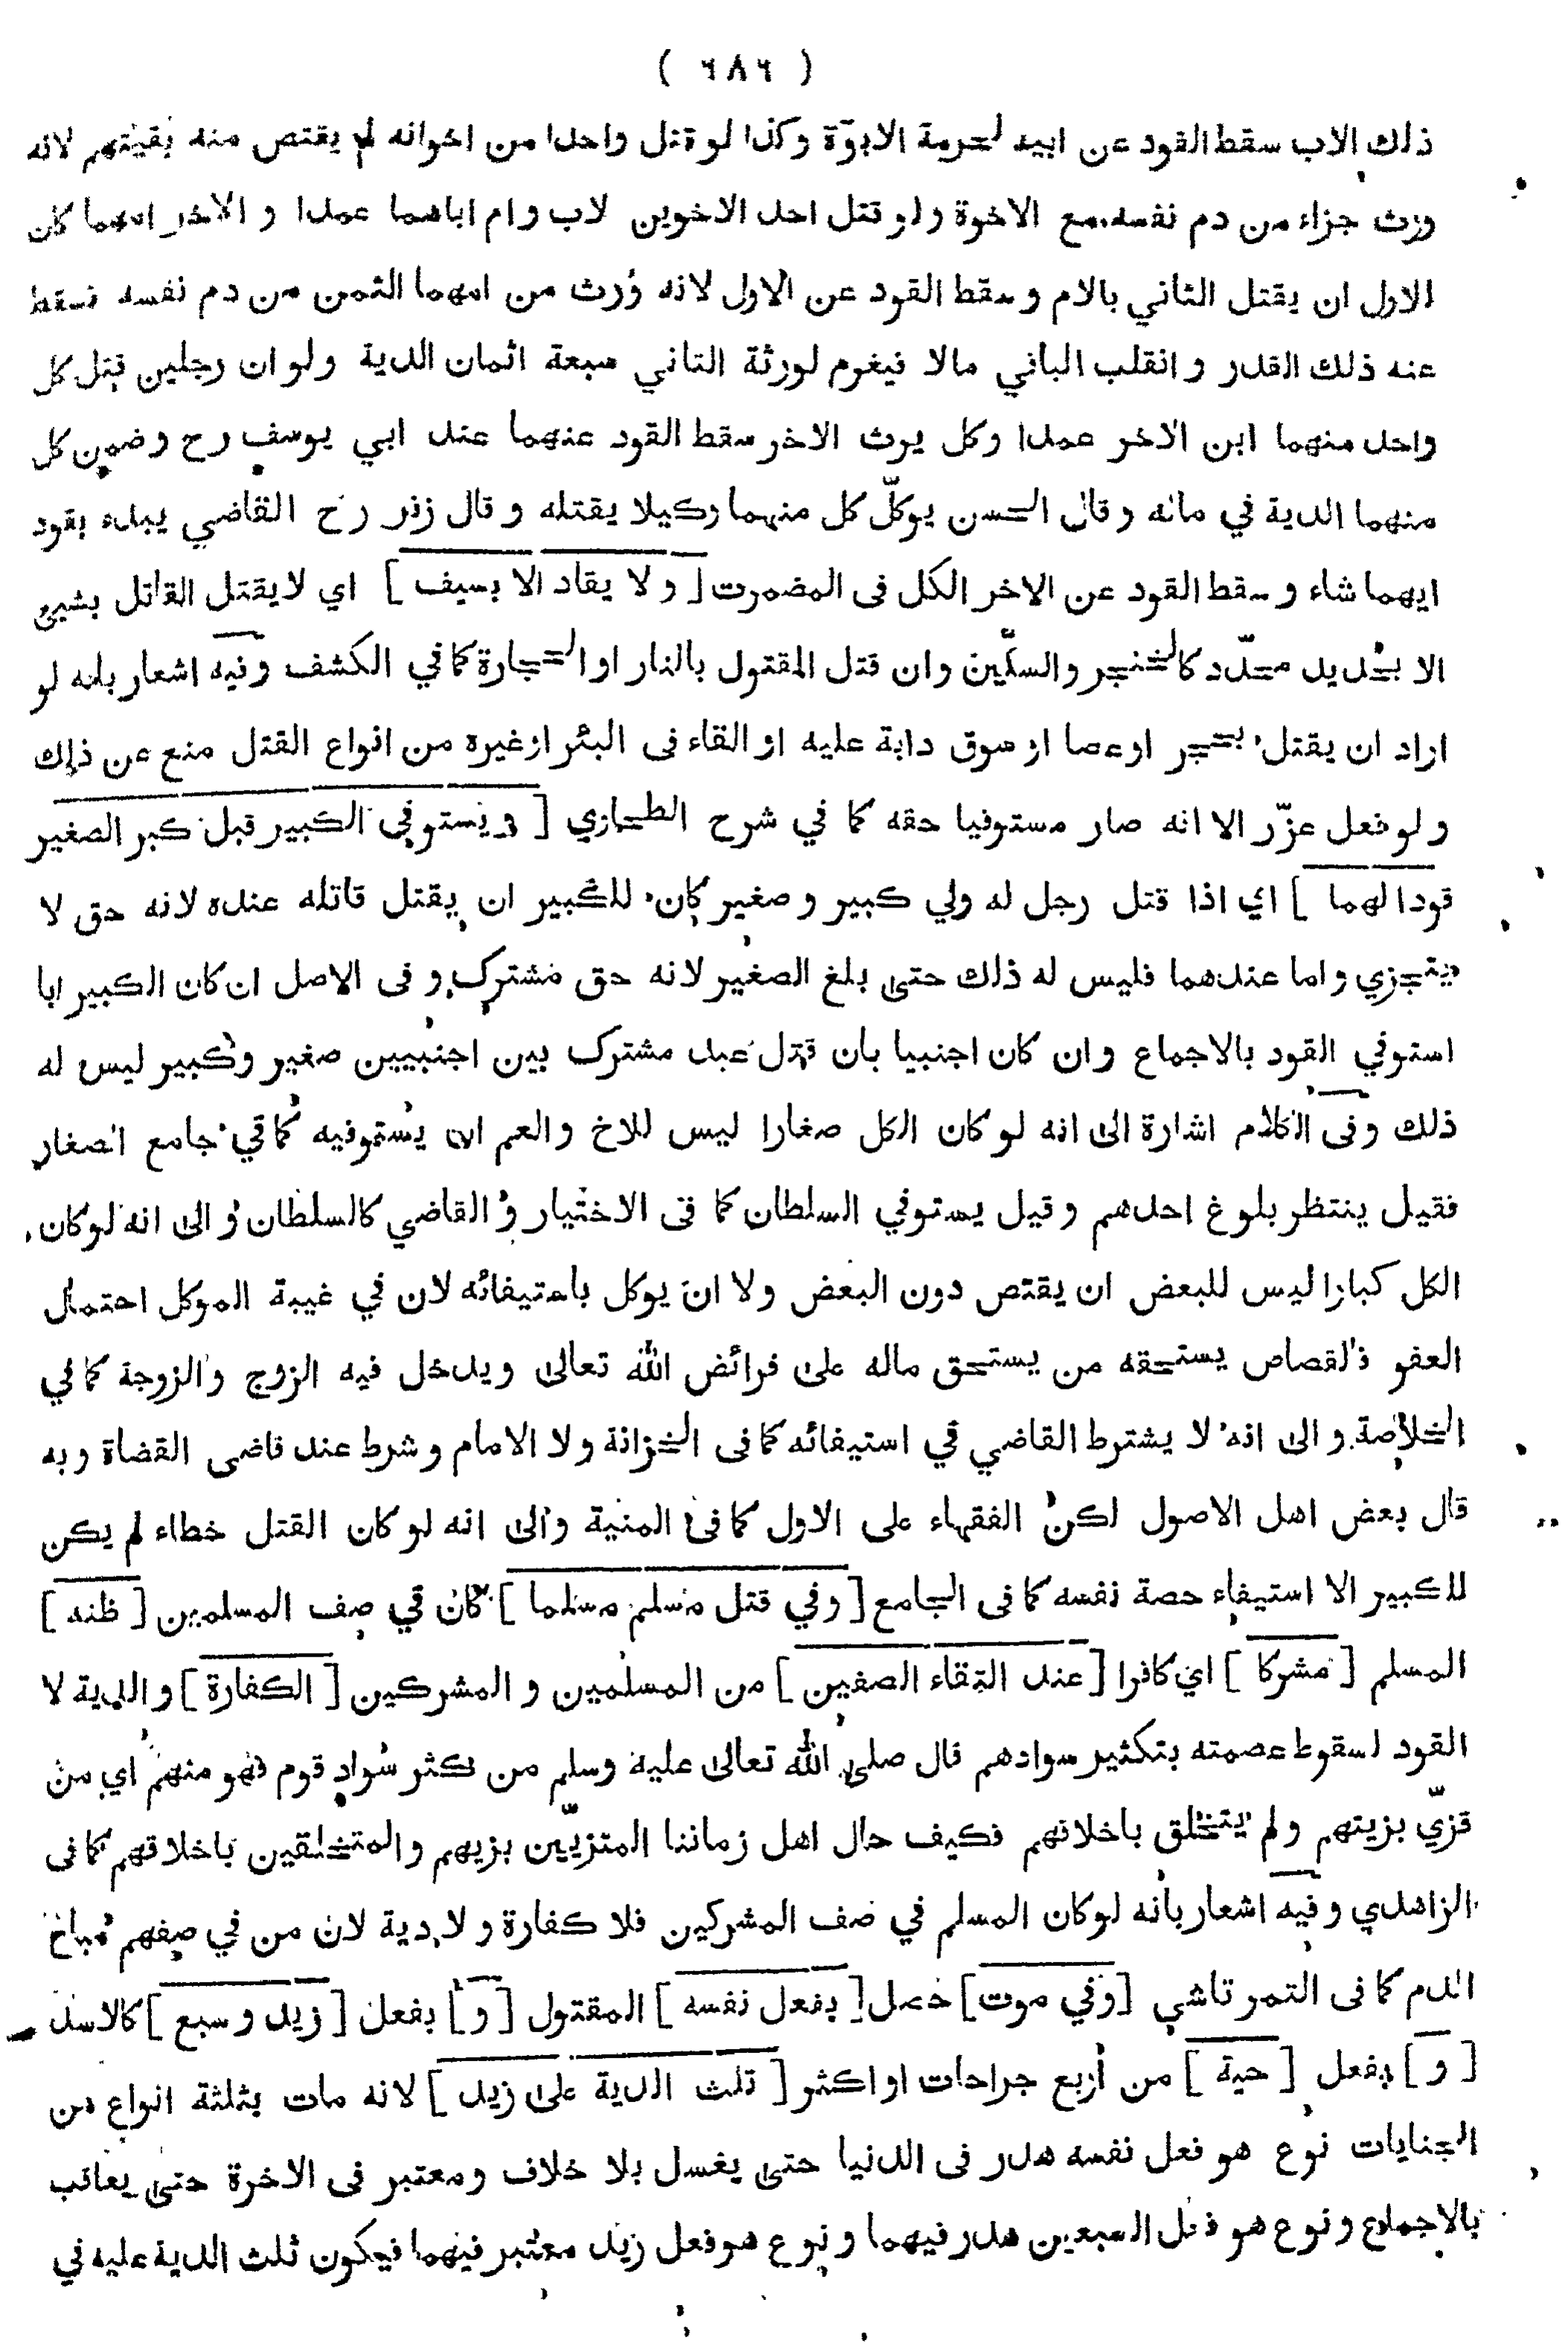 ( ٦٨٦ )
ذلك الاب سقط القود عن ابيه لحرمة الابوّة وكذا لو قتل واحدا من اخوانه لم يقتص منه بقيتهم لانه
ورث جزاء من دم نفسه مع الاخوة ولو قتل احد الاخوين لاب وام اباهما عمدا و الاخر امهما كان
للاول ان يقتل الثاني بالام وسقط القود عن الاول لانه ورث من امهما الثمن من دم نفسه فسقط
عنه ذلك القدر وانقلب الباقي مالا فيغرم لورثة الثاني سبعة اثمان الدية ولو ان رجلين قتل كل
واحد منهما ابن الاخر عمدا وكل يرث الاخر سقط القود عنهما عند ابي يوسف رح وضمن كل
منهما الدية في ماله وقال الحسن يوكّل كل منهما وكيلا يقتله وقال زفر رح القاضي يبدء بقود
ايهما شاء وسقط القود عن الاخر الكل فى المضمرت [ و لا يقاد الا بسيف ] اي لا يقتل القاتل بشيئ
الا بحديد محدّد كالخنجر والسكّين وان قتل المقتول بالنار او الحجارة كما في الكشف وفيه اشعار بانه لو
اراد ان يقتل بحجر او عصا او سوق دابة عليه او القاء فى البئر او غيره من انواع القتل منع عن ذلك
ولو فعل عزّر الا انه صار مستوفيا حقه كما في شرح الطحاوي [ ويستوفي الكبير قبل كبر الصغير
قودا لهما ] اي اذا قتل رجل له ولي كبير وصغير كان للكبير ان يقتل قاتله عنده لانه حق لا
يتجزي واما عندهما فليس له ذلك حتى بلغ الصغير لانه حق مشترك و فى الاصل ان كان الكبير ابا
استوفي القود بالاجماع وان كان اجنبيا بان قتل عبد مشترك بين اجنبيين صغير وكبير ليس له
ذلك وفى الكلام اشارة الى انه لو كان الكل صغارا ليس للاخ والعم ان يستوفيه كما في جامع الصغار
فقيل ينتظر بلوغ احدهم وقيل يستوفي السلطان كما فى الاختيار و القاضي كالسلطان و الى انه لو كان
الكل كبارا ليس للبعض ان يقتص دون البعض ولا ان يوكل باستيفائه لان في غيبة الموكل احتمال
العفو فالقصاص يستحقه من يستحق ماله على فرائض الله تعالى ويدخل فيه الزوج والزوجة كما في
الخلاصة و الى انه لا يشترط القاضي في استيفائه كما فى الخزانة ولا الامام وشرط عند قاضى القضاة وبه
قال بعض اهل الاصول لكن الفقهاء على الاول كما فى المنية والى انه لو كان القتل خطاء لم يكن
للكبير الا استيفاء حصة نفسه كما فى الجامع [ وفي قتل مسلم مسلما ] كان في صف المسلمين [ ظنه ]
المسلم [ مشركا ] اي كافرا [ عند التقاء الصفين ] من المسلمين و المشركين [ الكفارة ] و الدية لا
القود لسقوط عصمته بتكثير سوادهم قال صلى الله تعالى عليه وسلم من كثر سواد قوم فهو منهم اي من
تزيّ بزيتهم ولم يتخلق باخلاقهم فكيف حال اهل زماننا المتزيّين بزيهم والمتخلقين باخلاقهم كما فى
الزاهدي وفيه اشعار بانه لو كان المسلم في صف المشركين فلا كفارة ولا دية لان من في صفهم مباح
الدم كما فى التمرتاشي [ وفي موت ] حصل [ بفعل نفسه ] المقتول [ و ] بفعل [ زيد وسبع ] كالاسد
[ و ] بفعل [ حية ] من اربع جراحات او اكثر [ ثلث الدية على زيد ] لانه مات بثلثة انواع من
الجنايات نوع هو فعل نفسه هدر فى الدنيا حتى يغسل بلا خلاف ومعتبر فى الاخرة حتى يعاقب
بالاجماع ونوع هو فعل السبعين هدر فيهما ونوع هو فعل زيد معتبر فيهما فيكون ثلث الدية عليه في